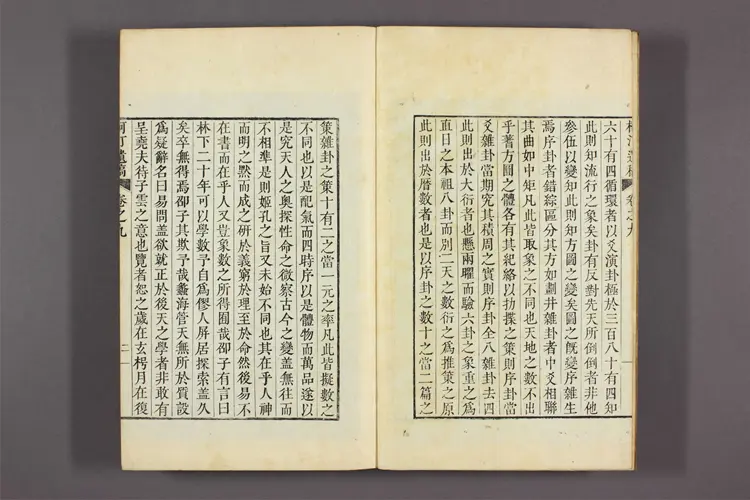 六十有四循環者以爻演卦極於三百八十有四知
此則知流行之象矣卦有反對先天所倒倒者非他
參伍以變知此則知方圖之變矣圖之旣變序雜生
焉序卦者錯綜區分其方如劃井雜卦者中爻相聯
其曲如中矩凡此皆取象之不同也天地之數不出
乎蓍方圓之體各有其紀絡以扐揲之策則序卦當
爻雜卦當期究其積周之實則序卦全八雜卦去四
此則出於大衍者也懸兩曜而驗六卦之象重之爲
直日之本祖八卦而別二天之數衍之爲推策之原
此則出於曆數者也是以序卦之數十之當二篇之
策雜卦之策十有二之當一元之率凡此皆擬數之
不同也以是配氣而四時序以是體物而萬品遂以
是究天人之奧探性命之微察古今之變蓋無往而
不相準是則姬孔之旨又未始不同也其在乎人神
而明之黙而成之硏於義窮於理至於命然後易不
在書而在乎人又豈象數之所得囿哉卲子有言曰
林下二十年可以學數予自爲僇人屏居探索蓋久
矣卒無得焉卲子其欺予哉蠡海管天無所於質設
爲疑辭名曰易問蓋欲就正於後天之學者非敢有
呈堯夫待子雲之意也覽者恕之歲在玄枵月在復
遺稿
卷之九
二